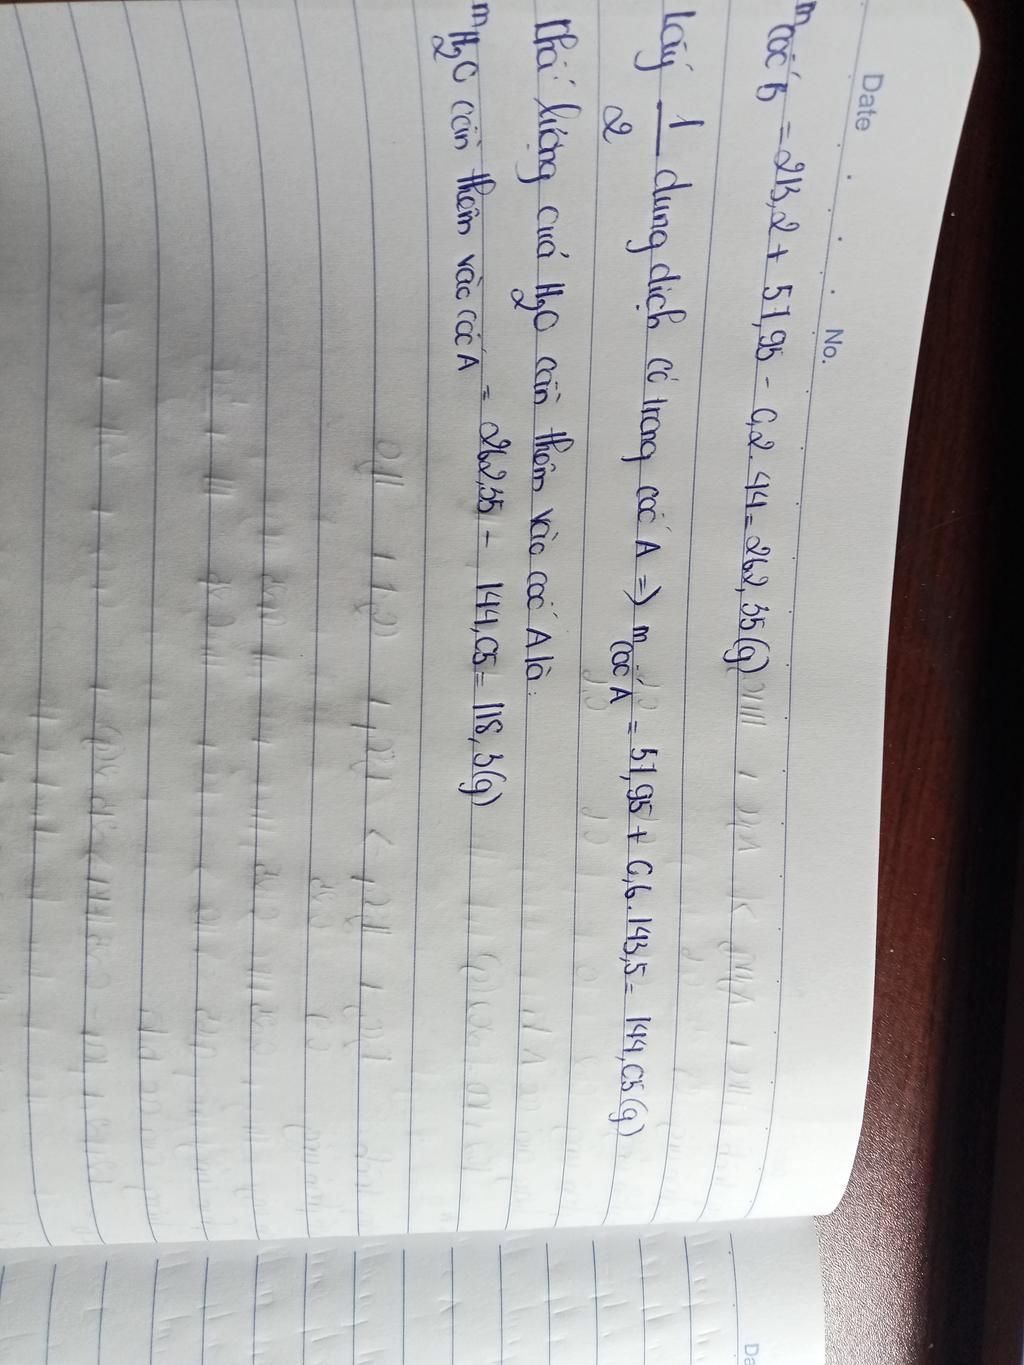 Date No.
m cốc B = 213,2 + 57,95 - 0,2.44 = 262,35(g)
Lấy 1/2 dung dịch có trong cốc A => m cốc A = 57,95 + 0,6.143,5 = 144,05(g)
Khối lượng của H2O cần thêm vào cốc A là:
m H2O cần thêm vào cốc A = 262,35 - 144,05 = 118,3(g)
Da